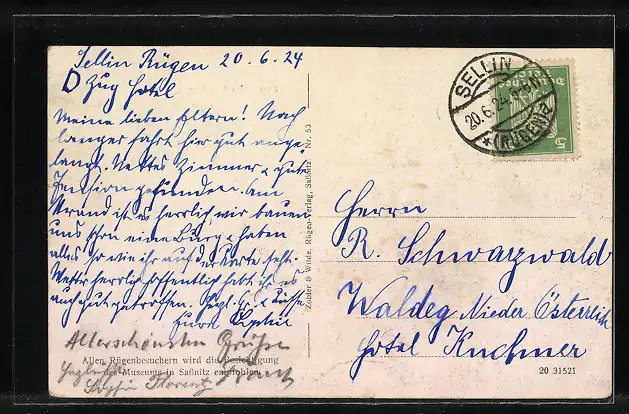 Sellin Rügen 20.6.24
Zug Hotel
Meine lieben Eltern! Nach
langer fahrt hier gut ange
langt. Nettes Zimmer & gute
Pension gefunden. Am
Strand ist es herrlich wir bauen
uns schon eine Burg & haben
alles so wie ihr auf der Karte seht.
Wetter herrlich hoffentlich habt ihr es
auch gut getroffen. Hzgl. Gr. & Küsse
Eure
Allerschönsten Grüße
Franz
Allen Rügenbesuchern wird die Besichtigung
des Museums in Saßnitz empfohlen.
Zobler & Wilde, Rügen-Verlag, Saßnitz. Nr. 53
SELLIN
20.6.24
*(RÜGEN)
5
Herrn
R. Schwarzwald
Waldeg Nieder Österreich
Hotel Kuchner
20 31521